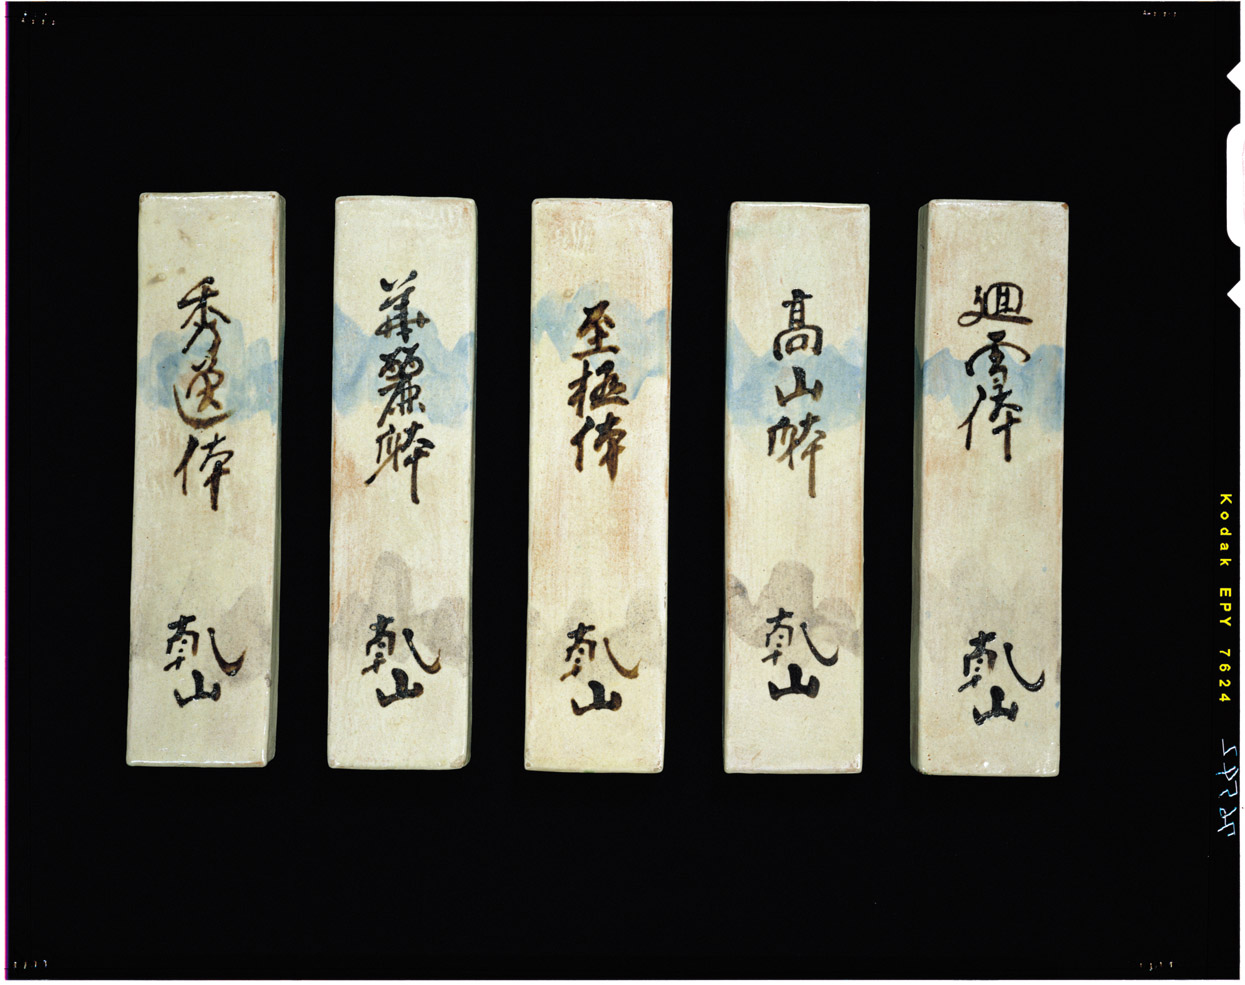 廻雪体
乾山
高山躰
乾山
至極体
乾山
華麗躰
乾山
秀逸体
乾山
Kodak EPY 7624